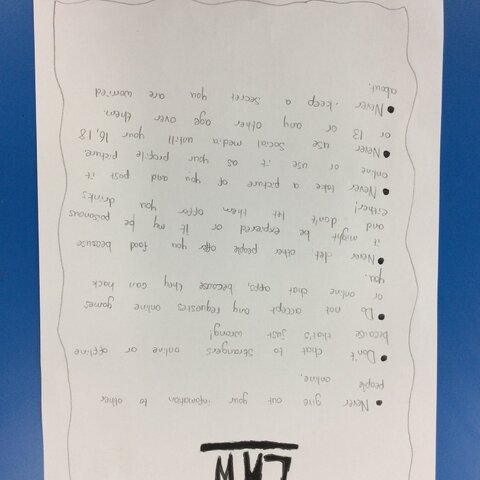 • Never give out your infomation to other
people online.
• Don't chat to strangers online or offline
because that's just wrong!
• Do not accept any requestes online games
or online chat apps, because they can hack
you.
• Never let other people offer you food because
it might be expiered or it my be poisonous
and don't let them offer you drinks
either!
• Never take a picture of you and post it
online or use it as your profile picture.
• Never use social media untill your 16,18
or 13 or any other age over them.
• Never keep a secret you are worried
about.